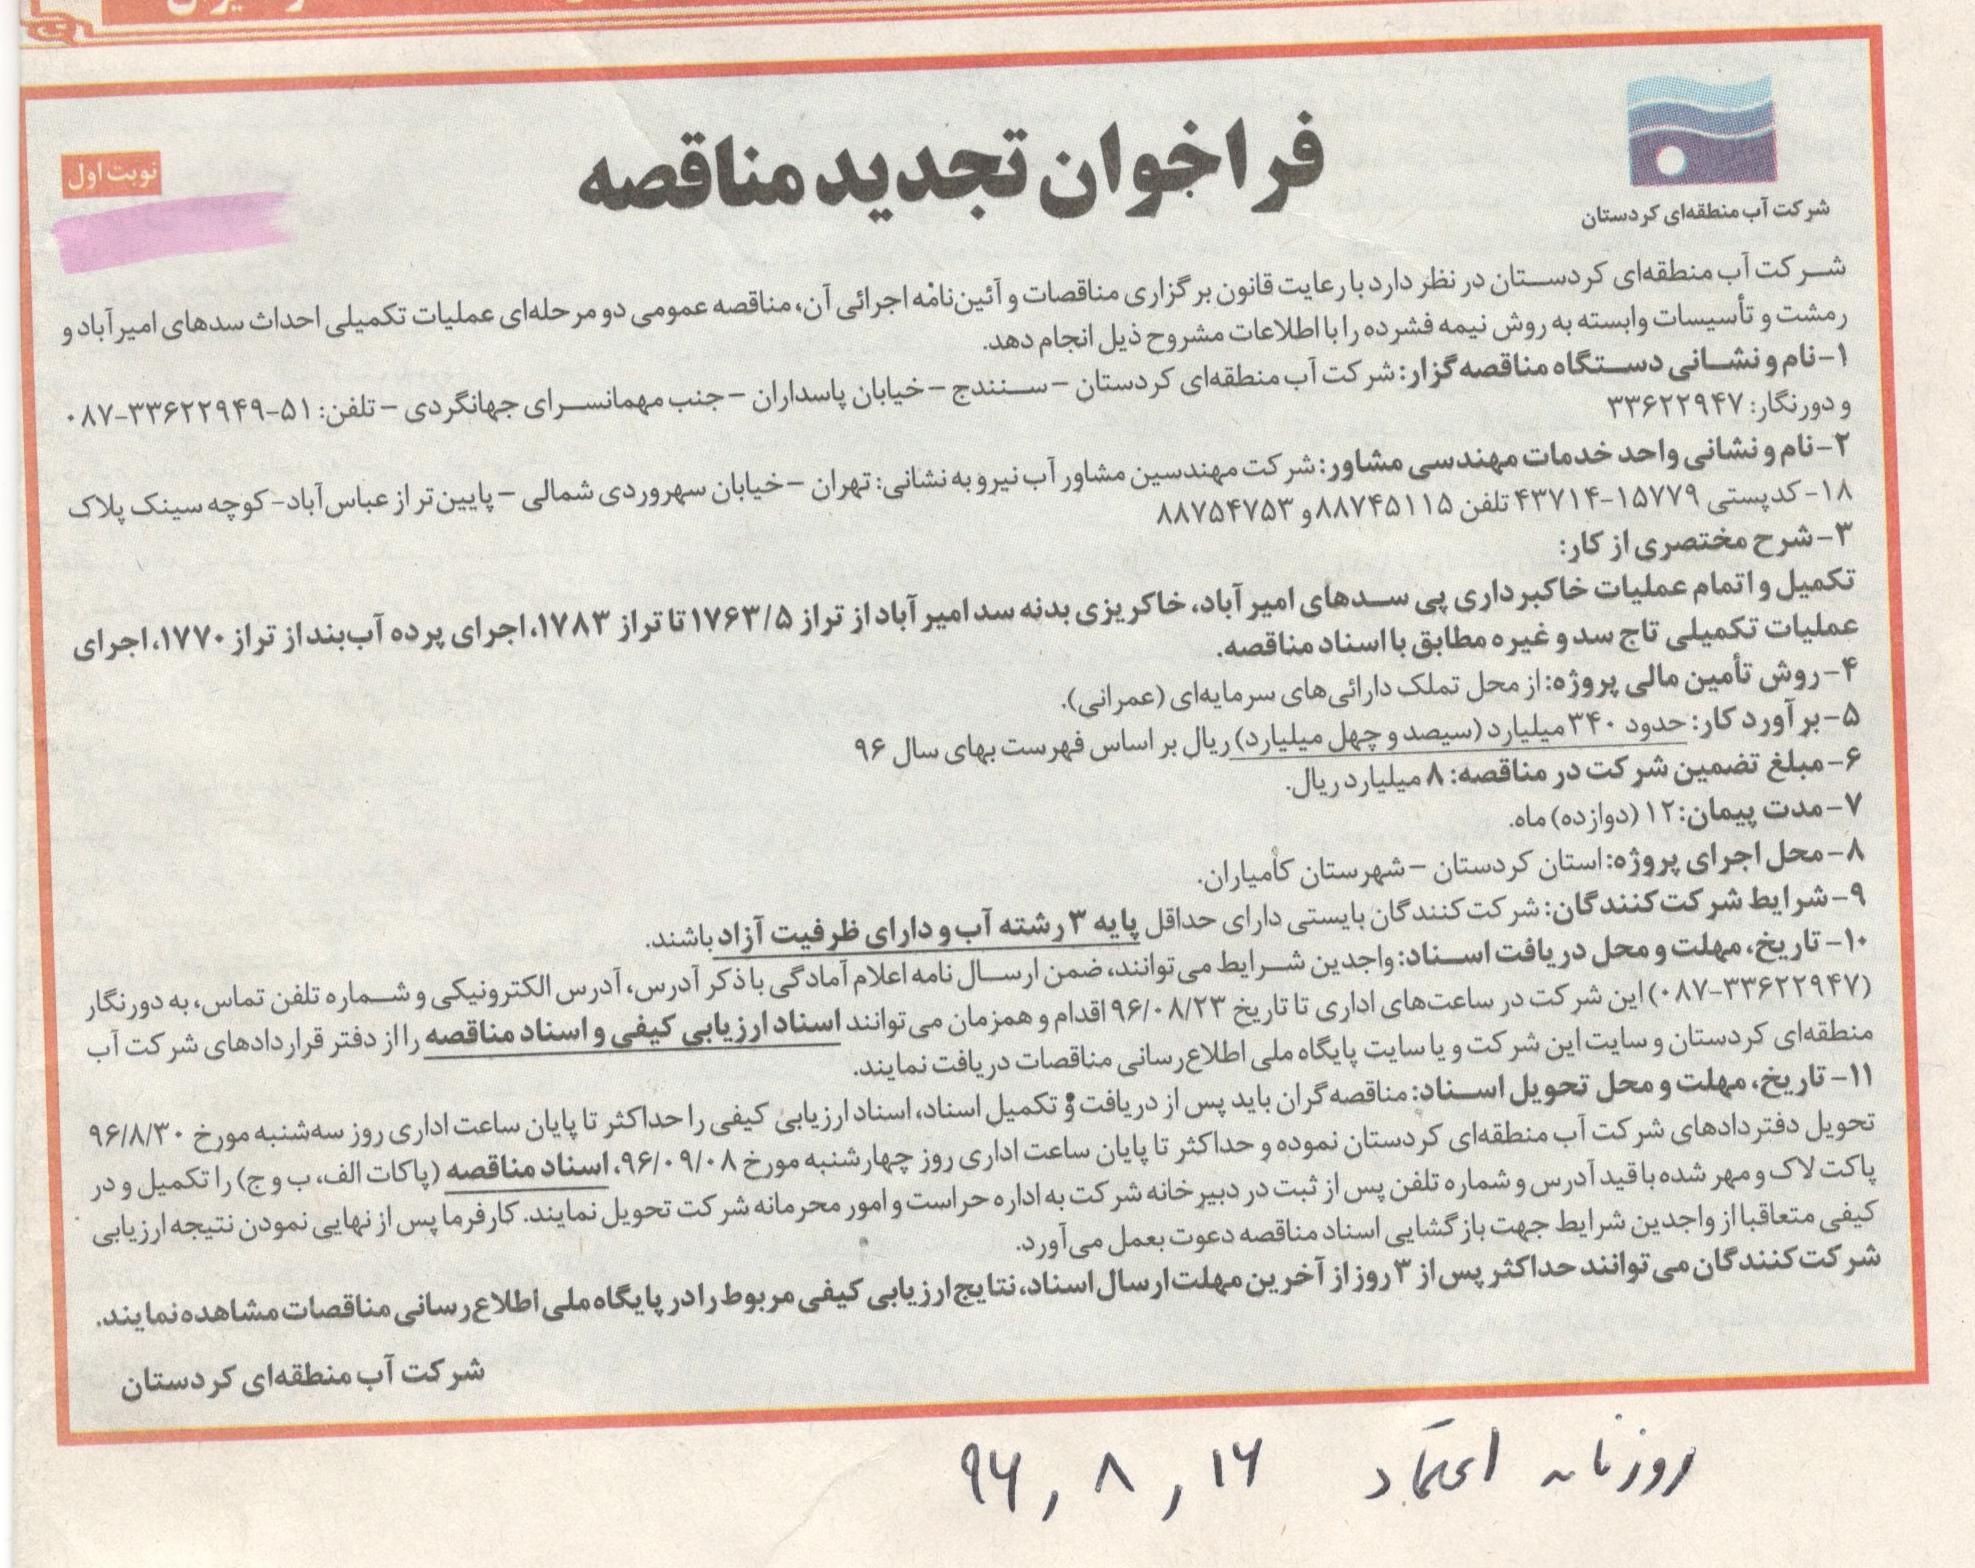 فراخوان تجدید مناقصه
نوبت اول
شرکت آب منطقه‌ای کردستان
شرکت آب منطقه‌ای کردستان در نظر دارد با رعایت قانون برگزاری مناقصات و آئین‌نامه اجرائی آن، مناقصه عمومی دو مرحله‌ای عملیات تکمیلی احداث سدهای امیرآباد و
رمشت و تأسیسات وابسته به روش نیمه فشرده را با اطلاعات مشروح ذیل انجام دهد.
۱- نام و نشانی دستگاه مناقصه‌گزار: شرکت آب منطقه‌ای کردستان – سنندج – خیابان پاسداران – جنب مهمانسرای جهانگردی – تلفن: ۵۱-۳۳۶۲۲۹۴۹-۰۸۷
و دورنگار: ۳۳۶۲۲۹۴۷
۲- نام و نشانی واحد خدمات مهندسی مشاور: شرکت مهندسین مشاور آب نیرو به نشانی: تهران – خیابان سهروردی شمالی – پایین‌تر از عباس‌آباد- کوچه سینک پلاک
۱۸- کدپستی ۱۵۷۷۹-۴۳۷۱۴ تلفن ۸۸۷۴۵۱۱۵ و ۸۸۷۵۴۷۵۳
۳- شرح مختصری از کار:
تکمیل و اتمام عملیات خاکبرداری پی سدهای امیرآباد، خاکریزی بدنه سد امیرآباد از تراز ۱۷۶۳/۵ تا تراز ۱۷۸۳، اجرای پرده آب‌بند از تراز ۱۷۷۰، اجرای
عملیات تکمیلی تاج سد و غیره مطابق با اسناد مناقصه.
۴- روش تأمین مالی پروژه: از محل تملک دارائی‌های سرمایه‌ای (عمرانی).
۵- برآورد کار: حدود ۳۴۰ میلیارد (سیصد و چهل میلیارد) ریال بر اساس فهرست بهای سال ۹۶
۶- مبلغ تضمین شرکت در مناقصه: ۸ میلیارد ریال.
۷- مدت پیمان: ۱۲ (دوازده) ماه.
۸- محل اجرای پروژه: استان کردستان – شهرستان کامیاران.
۹- شرایط شرکت‌کنندگان: شرکت‌کنندگان بایستی دارای حداقل پایه ۳ رشته آب و دارای ظرفیت آزاد باشند.
۱۰- تاریخ، مهلت و محل دریافت اسناد: واجدین شرایط می‌توانند، ضمن ارسال نامه اعلام آمادگی با ذکر آدرس، آدرس الکترونیکی و شماره تلفن تماس، به دورنگار
(۰۸۷-۳۳۶۲۲۹۴۷) این شرکت در ساعت‌های اداری تا تاریخ ۹۶/۰۸/۲۳ اقدام و همزمان می‌توانند اسناد ارزیابی کیفی و اسناد مناقصه را از دفتر قراردادهای شرکت آب
منطقه‌ای کردستان و سایت این شرکت و یا سایت پایگاه ملی اطلاع‌رسانی مناقصات دریافت نمایند.
۱۱- تاریخ، مهلت و محل تحویل اسناد: مناقصه‌گران باید پس از دریافت و تکمیل اسناد، اسناد ارزیابی کیفی را حداکثر تا پایان ساعت اداری روز سه‌شنبه مورخ ۹۶/۸/۳۰
تحویل دفتردادهای شرکت آب منطقه‌ای کردستان نموده و حداکثر تا پایان ساعت اداری روز چهارشنبه مورخ ۹۶/۰۹/۰۸، اسناد مناقصه (پاکات الف، ب و ج) را تکمیل و در
پاکت لاک و مهر شده با قید آدرس و شماره تلفن پس از ثبت در دبیرخانه شرکت به اداره حراست و امور محرمانه شرکت تحویل نمایند. کارفرما پس از نهایی نمودن نتیجه ارزیابی
کیفی متعاقبا از واجدین شرایط جهت بازگشایی اسناد مناقصه دعوت بعمل می‌آورد.
شرکت‌کنندگان می‌توانند حداکثر پس از ۳ روز از آخرین مهلت ارسال اسناد، نتایج ارزیابی کیفی مربوط را در پایگاه ملی اطلاع‌رسانی مناقصات مشاهده نمایند.
شرکت آب منطقه‌ای کردستان
روزنامه اعتماد ۹۶,۸,۱۶